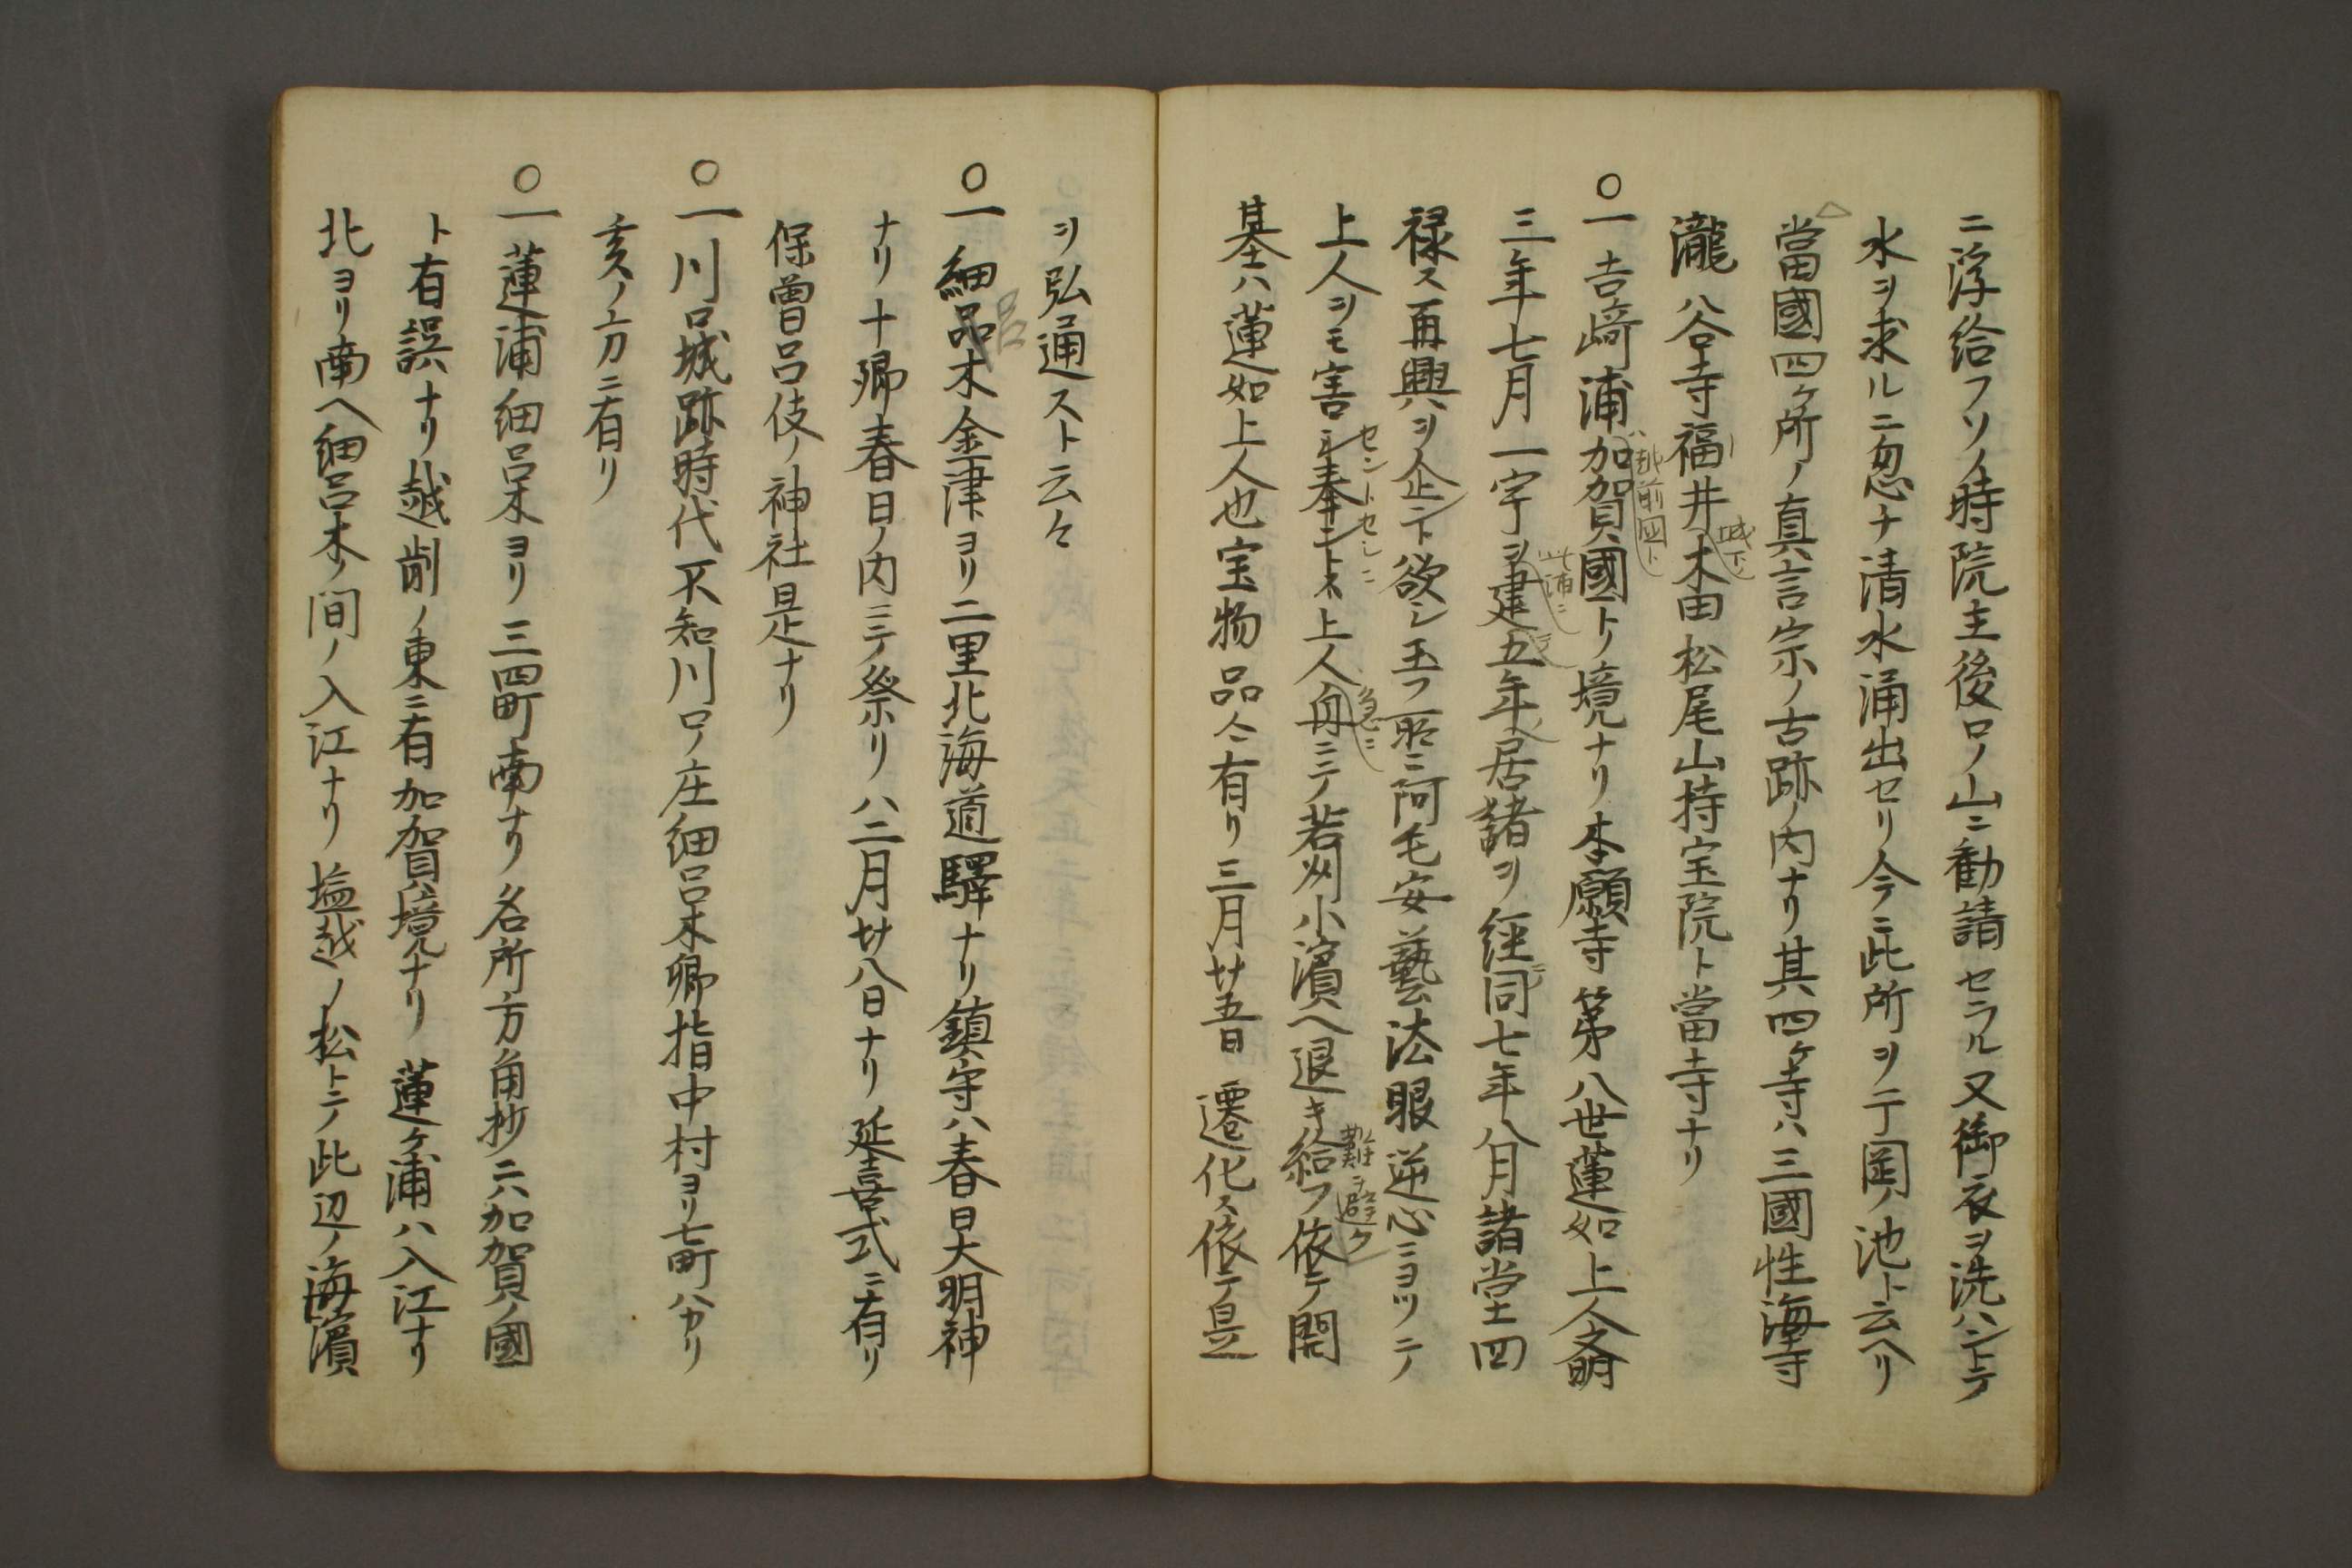 ニ浮給フソノ時院主後ロノ山ニ勧請セラル又御衣ヲ洗ハントテ
水ヲ求ルニ忽ナ清水涌出セリ今ニ此所ヲ丁圓ノ池ト云ヘリ
△
當國四ケ所ノ真言宗ノ古跡ノ内ナリ其四ケ寺ハ三國性海寺
瀧谷寺福井木田松尾山持宝院ト當寺ナリ
城下ノ
○一吉﨑浦加賀國トノ境ナリ本願寺第八世蓮如上人文明
ハ越前国ト
三年七月一宇ヲ建五年居諸ヲ経同七年八月諸堂回
此浦ニ
禄ス再興ヲ企ント欲シ玉フ所ニ阿毛安藝法眼逆心ニヨツテ
上人ヲモ害シ奉ントス上人舟ニテ若州小濱ヘ退キ給フ依テ開
セントセシニ
急ニ
難ヲ避ク
基ハ蓮如上人也宝物品々有リ三月廿五日遷化ス依テ是
ヲ弘通スト云々
○一細品木金津ヨリ二里北海道驛ナリ鎮守ハ春日大明神
呂
ナリ十郷春日ノ内ニテ祭リハ二月廿八日ナリ延喜式ニ有リ
保曽呂伎ノ神社是ナリ
○一川口城跡時代不知川口ノ庄細呂木郷指中村ヨリ七町ハカリ
亥ノ方ニ有リ
○一蓮浦細呂木ヨリ三四町南ナリ名所方角抄ニハ加賀ノ國
ト有誤ナリ越前ノ東ニ有加賀境ナリ蓮ケ浦ハ入江ナリ
北ヨリ南ヘ細呂木ノ間ノ入江ナリ塩越ノ松トテ此辺ノ海濱